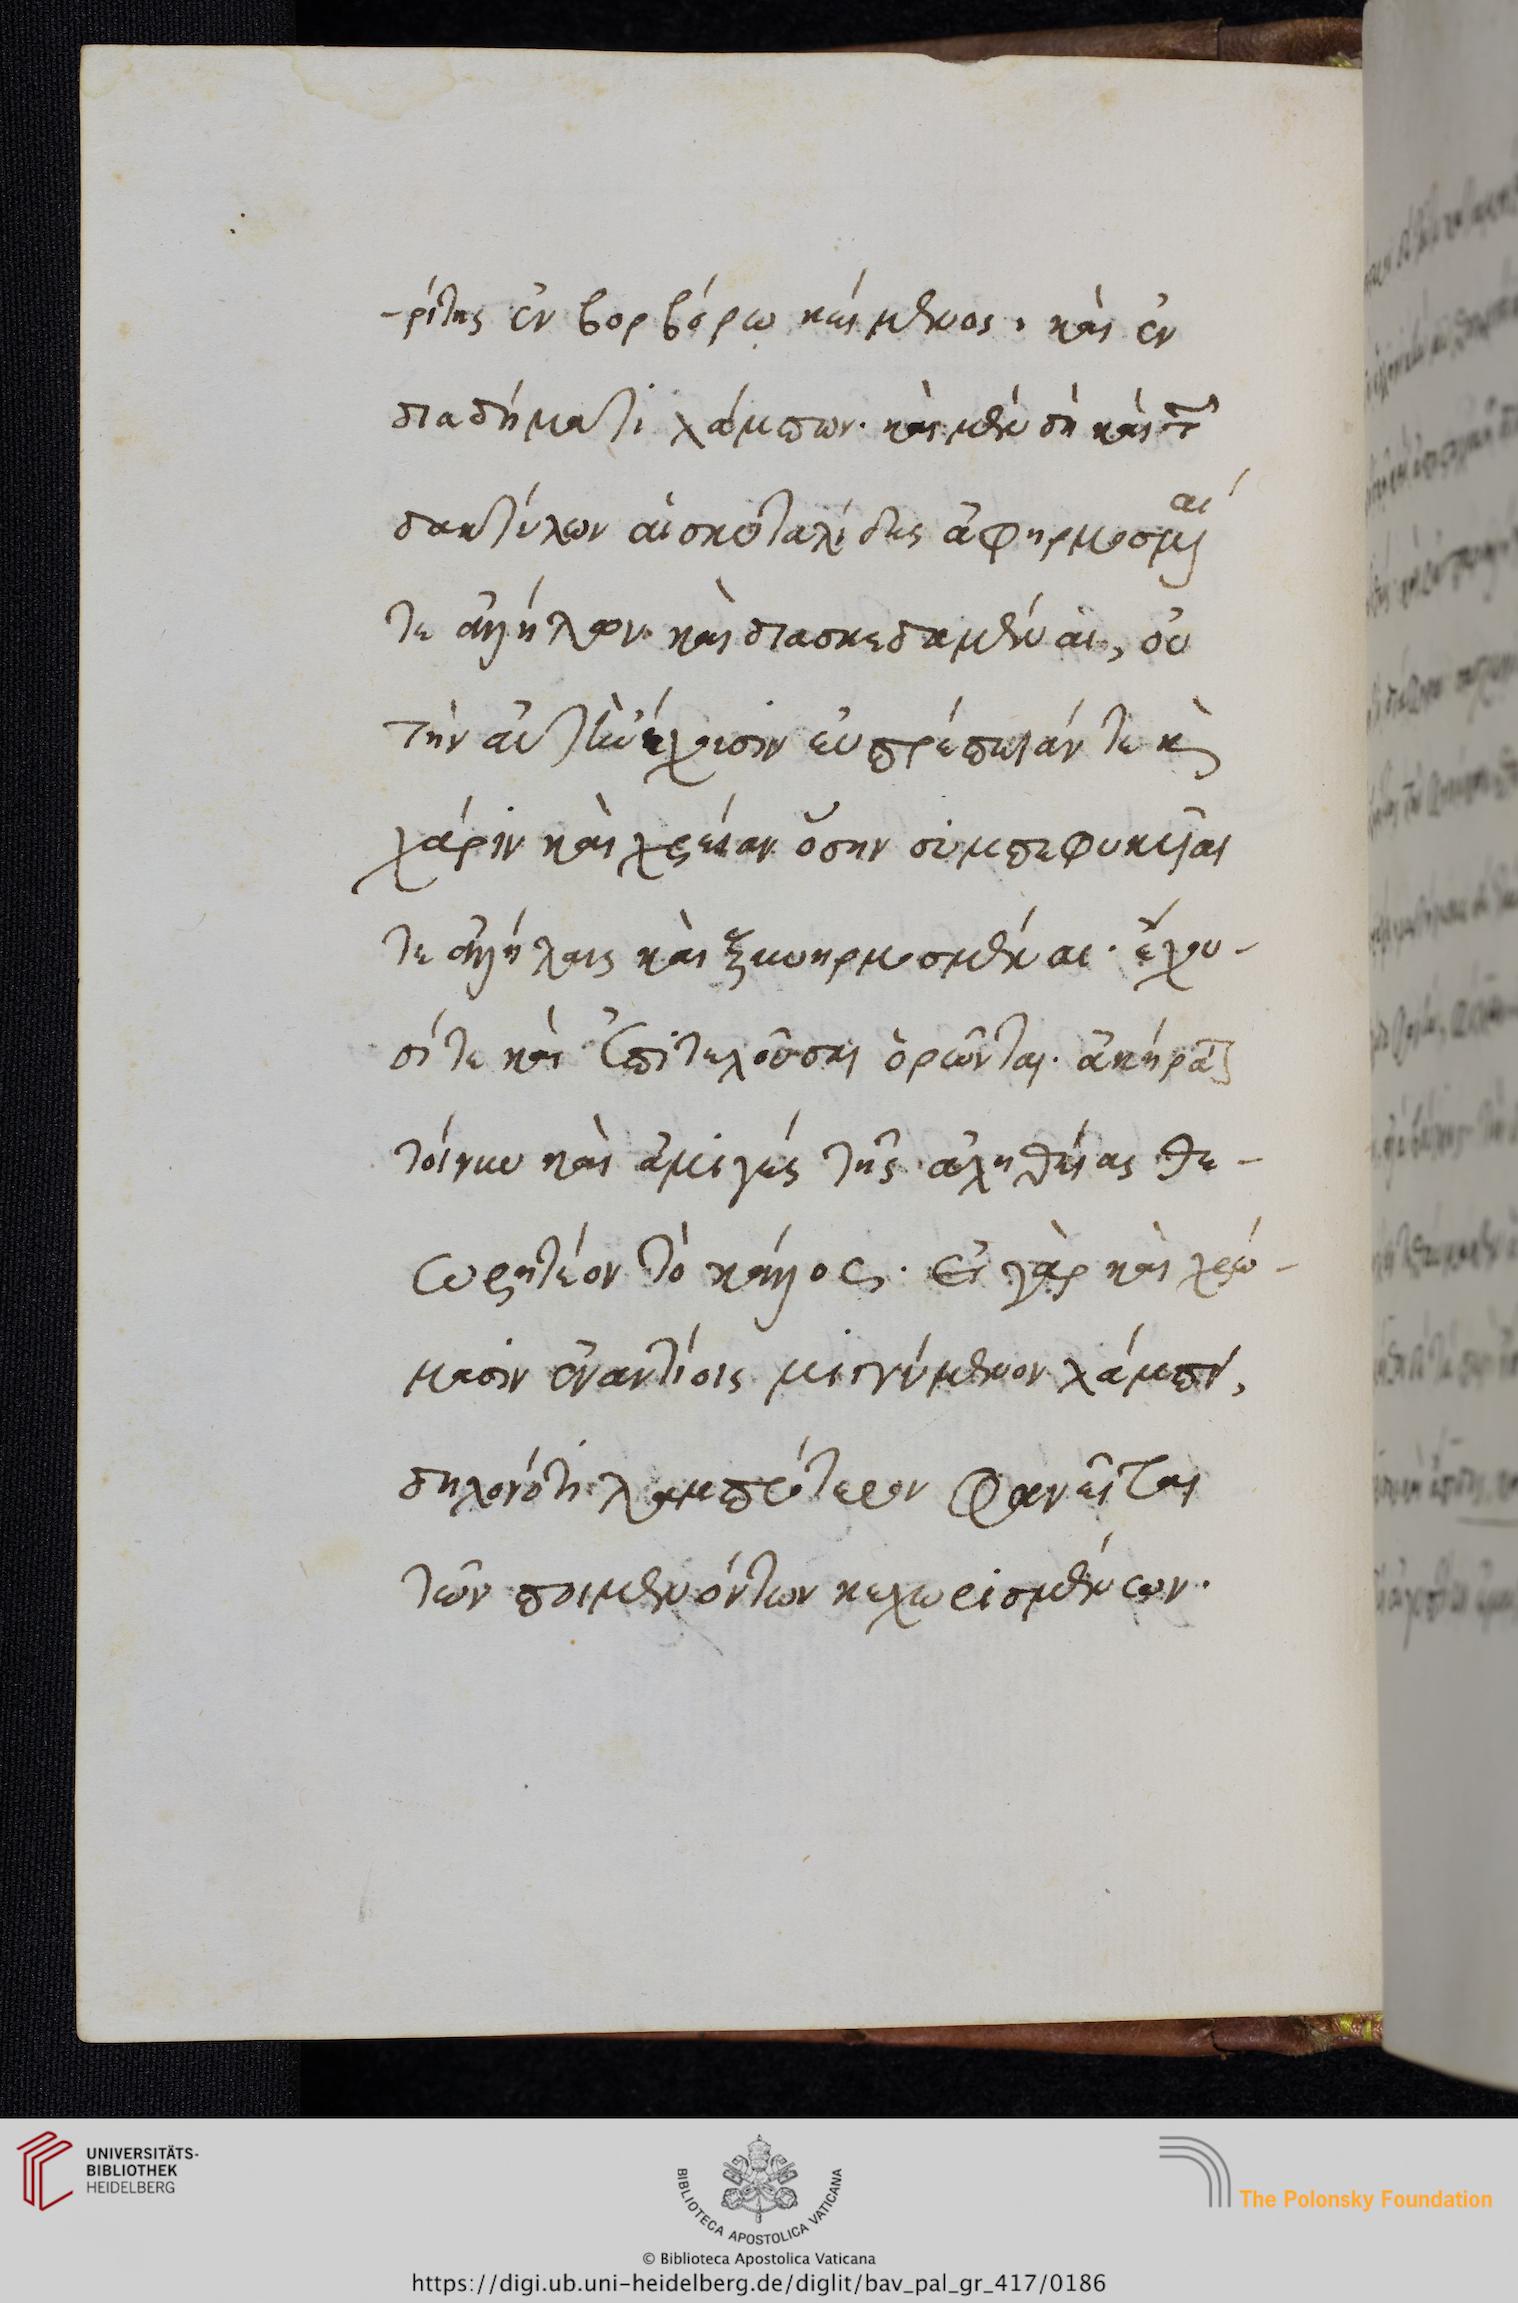 -ρίτης ἐν βορβόρῳ κείμενος. καὶ ἐν
διαδήματι λάμπων. καὶ μὲν δὴ καὶ τῶν
δακτύλων αἱ σκυταλίδες ἀφηρμοσμέναι
τε ἀλλήλων καὶ διασκεδαμέναι, οὐ
τὴν αὐτὴν ἔχουσιν εὐπρέπειάν τε καὶ
χάριν καὶ χρείαν ὅσην συμπεφυκυῖαι
τε ἀλλήλαις καὶ ξυνηρμοσμέναι. ἔχου-
σί τε καὶ ἐπιτελοῦσαι ὁρῶνται. ἀκήρατον
τοίνυν καὶ ἀμιγὲς τῆς ἀληθείας θε-
ωρητέον τὸ κάλλος. εἰ γὰρ καὶ χρώ-
μασιν ἐναντίοις μιγνύμενον λάμπει,
δηλονότι λαμπρότερον φανεῖται
τῶν ποιμενόντων κεχωρισμένων.
UNIVERSITÄTS-
BIBLIOTHEK
HEIDELBERG
BIBLIOTECA APOSTOLICA VATICANA
The Polonsky Foundation
© Biblioteca Apostolica Vaticana
https://digi.ub.uni-heidelberg.de/diglit/bav_pal_gr_417/0186